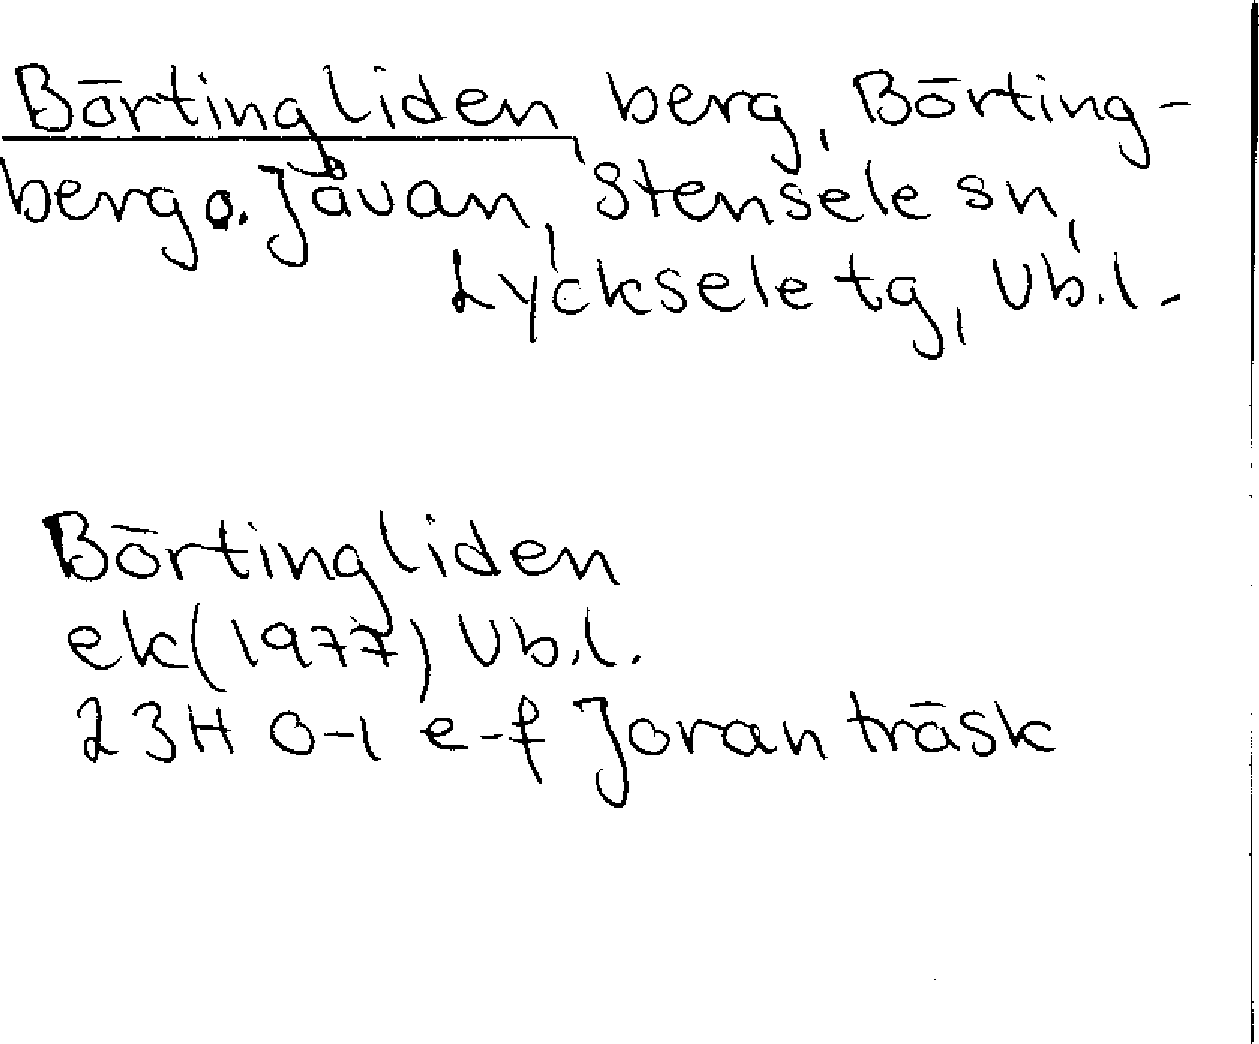 Börtingliden, berg, Börting-
berg o. Jåvan, Stensele sn,
Lycksele tg, Vb.l.
Börtingliden
ek(1977) Vb.l.
23H 0-1 e-f Joranträsk